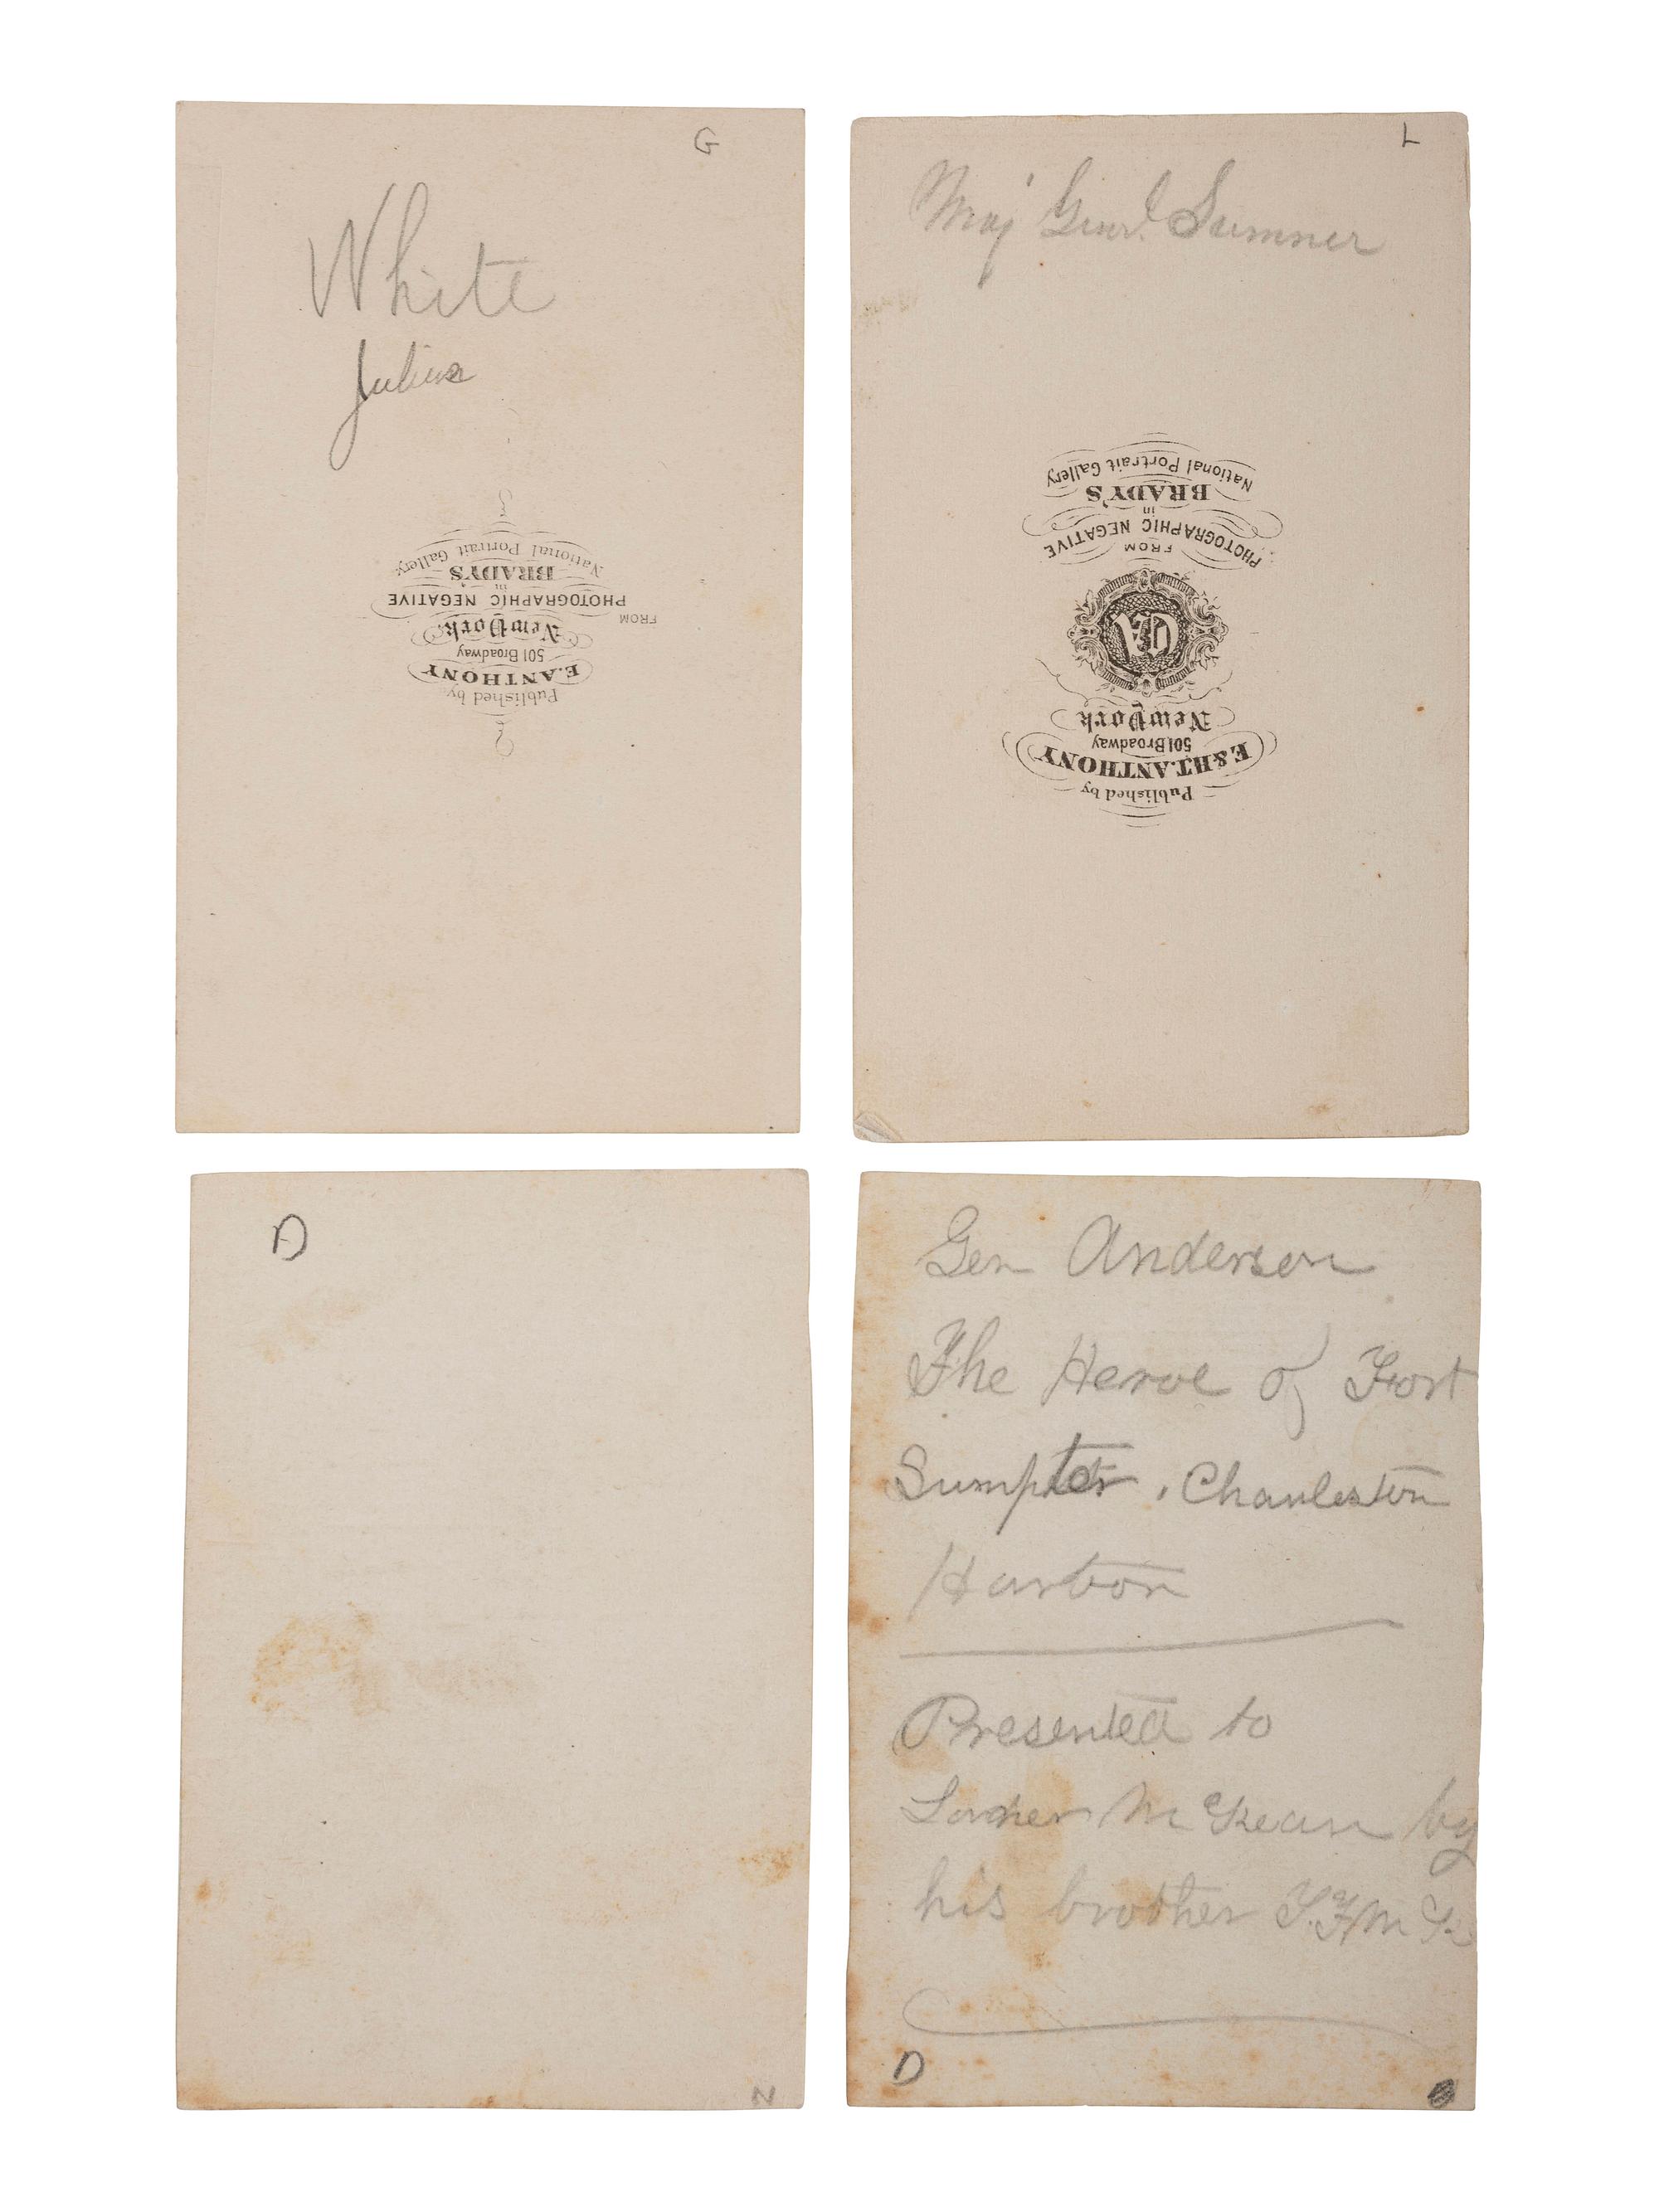 G
White
Julius
National Portrait Gallery.
BRADY'S
in
PHOTOGRAPHIC NEGATIVE
FROM
New York.
501 Broadway
E. ANTHONY
Published by
L
Maj Genrl. Sumner
National Portrait Gallery
BRADY'S
in
PHOTOGRAPHIC NEGATIVE
FROM
EA
New York
501 Broadway
E. & H.T. ANTHONY
Published by
D
N
Gen Anderson
The Heroe of Fort
Sumpter, Charleston
Harbor
Presented to
McKean by
his brother
D